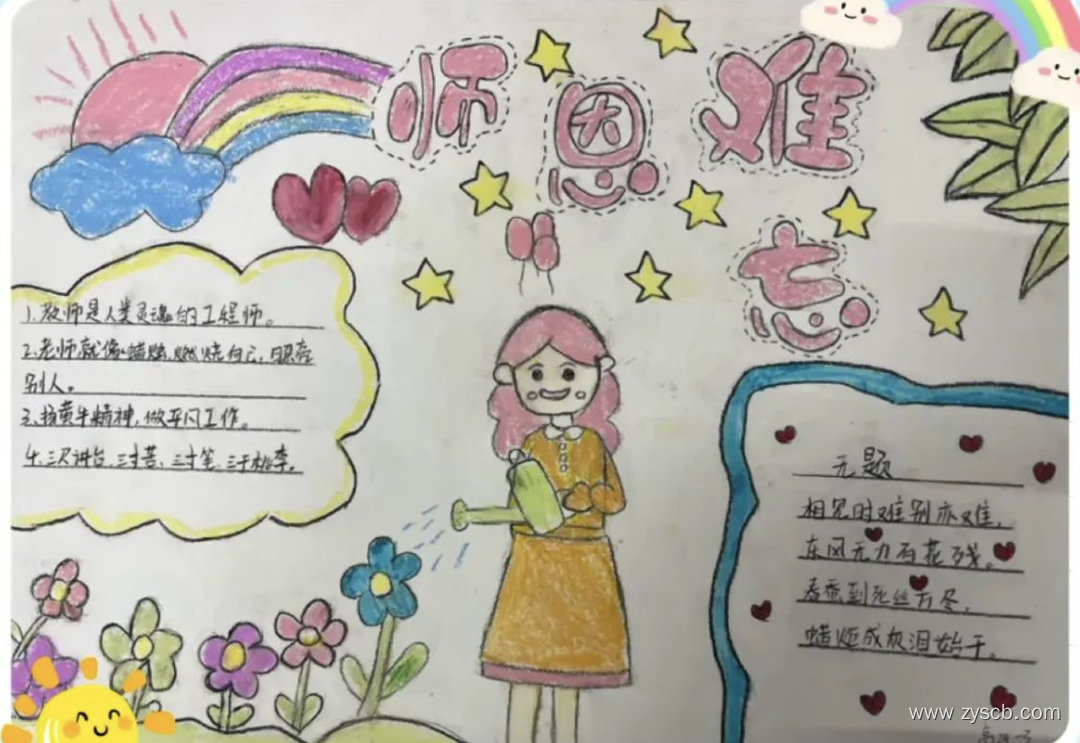 师恩难忘
1.教师是人类灵魂的工程师。
2.老师就像蜡烛,燃烧自己,照亮
别人。
3.按黄牛精神,做平凡工作。
4.三尺讲台,三寸舌,三寸笔,三千桃李。
无题
相见时难别亦难,
东风无力百花残。
春蚕到死丝方尽,
蜡炬成灰泪始干。
www.zyscb.com